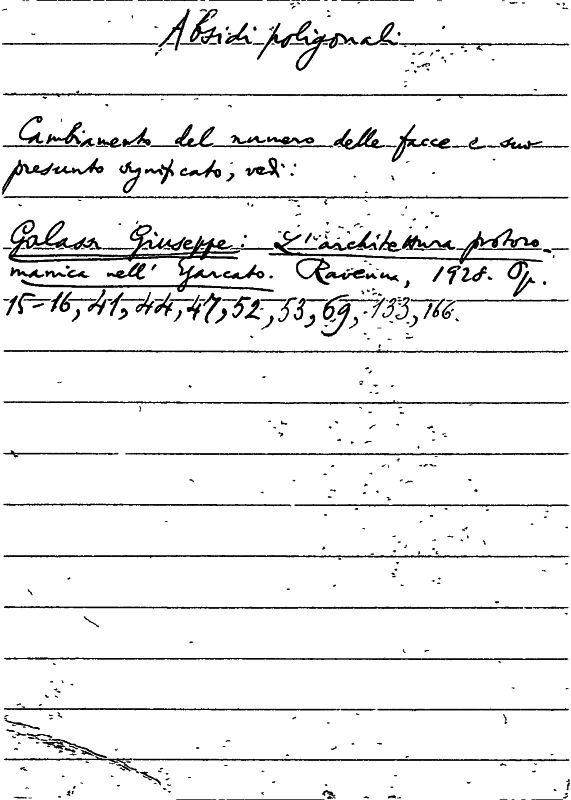 Absidi poligonali
Cambiamento del numero delle facce e suo
presunto significato; vedi:
Galassi Giuseppe: L'architettura protoro-
manica nell' Esarcato. Ravenna, 1928. Pp.
15-16, 41, 44, 47, 52, 53, 69, 133, 166.